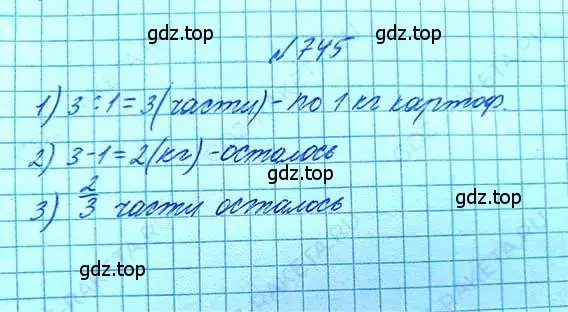 gdz.top
№745
gdz.top
1) 3:1=3(части)-по 1 кг картоф.
gdz.top
2) 3-1=2(кг)-осталось
gdz.top gdz.top
3) 2/3 части осталось
gdz.top
gdz.top